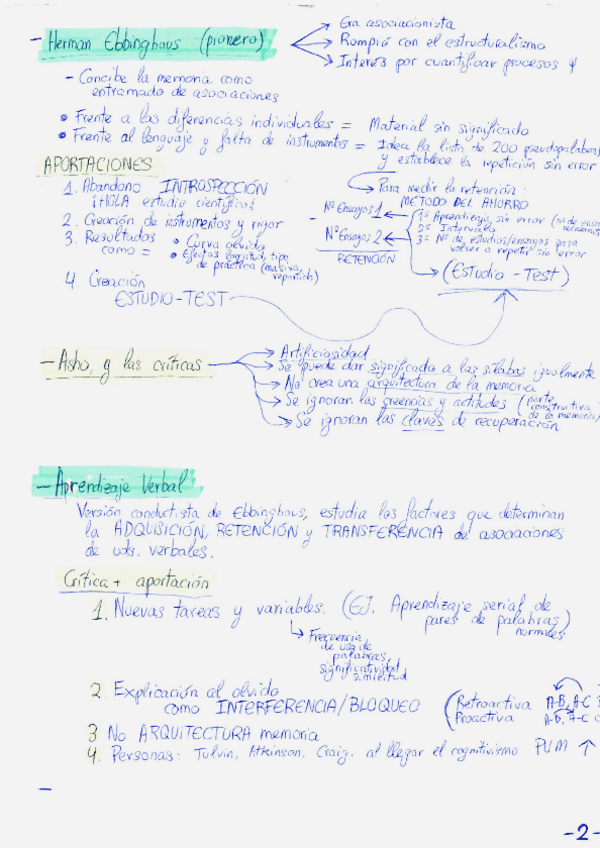 - Herman Ebbinghaus (pionero)
→ Era asociacionista
→ Rompió con el estructuralismo
→ Interés por cuantificar procesos ψ
- Concibe la memoria como
entramado de asociaciones
• Frente a las diferencias individuales = Material sin significado
• Frente al lenguaje y falta de instrumentos = Idea la lista de 200 pseudopalabras
y establece la repetición sin error
APORTACIONES
1. Abandono INTROSPECCIÓN
¡HOLA estudio científico!
2. Creación de instrumentos y rigor
3. Resultados como =
• Curva olvido
• Efectos longitud, tipo
de práctica (masiva,
repartida)
4. Creación
ESTUDIO-TEST
Para medir la retención:
MÉTODO DEL AHORRO
- Nº Ensayos 1
Nº Ensayos 2
RETENCIÓN
1º Aprendizaje sin error (nº de ensayos
necesarios)
2º Intervalo
3º Nº de estudios/ensayos para
volver a repetir sin error
(Estudio - Test)
- Asho, y las críticas
→ Artificiosidad
→ Se puede dar significado a las sílabas igualmente
→ No crea una arquitectura de la memoria
→ Se ignoran las creencias y actitudes (parte
constructiva
de la memoria)
→ Se ignoran las claves de recuperación
- Aprendizaje Verbal
Versión conductista de Ebbinghaus, estudia los factores que determinan
la ADQUISICIÓN, RETENCIÓN y TRANSFERENCIA de asociaciones
de uds. verbales.
Crítica + aportación
1. Nuevas tareas y variables. (EJ. Aprendizaje serial de
pares de palabras)
normales
↳ Frecuencia
de uso de
palabras,
significatividad
similitud
2 Explicación al olvido
como INTERFERENCIA/BLOQUEO
(Retroactiva A-B, A-C
Proactiva A-B, A-C
3 No ARQUITECTURA memoria
4. Personas: Tulvin, Atkinson, Craig. al llegar el cognitivismo PUM ↑
-
-2-